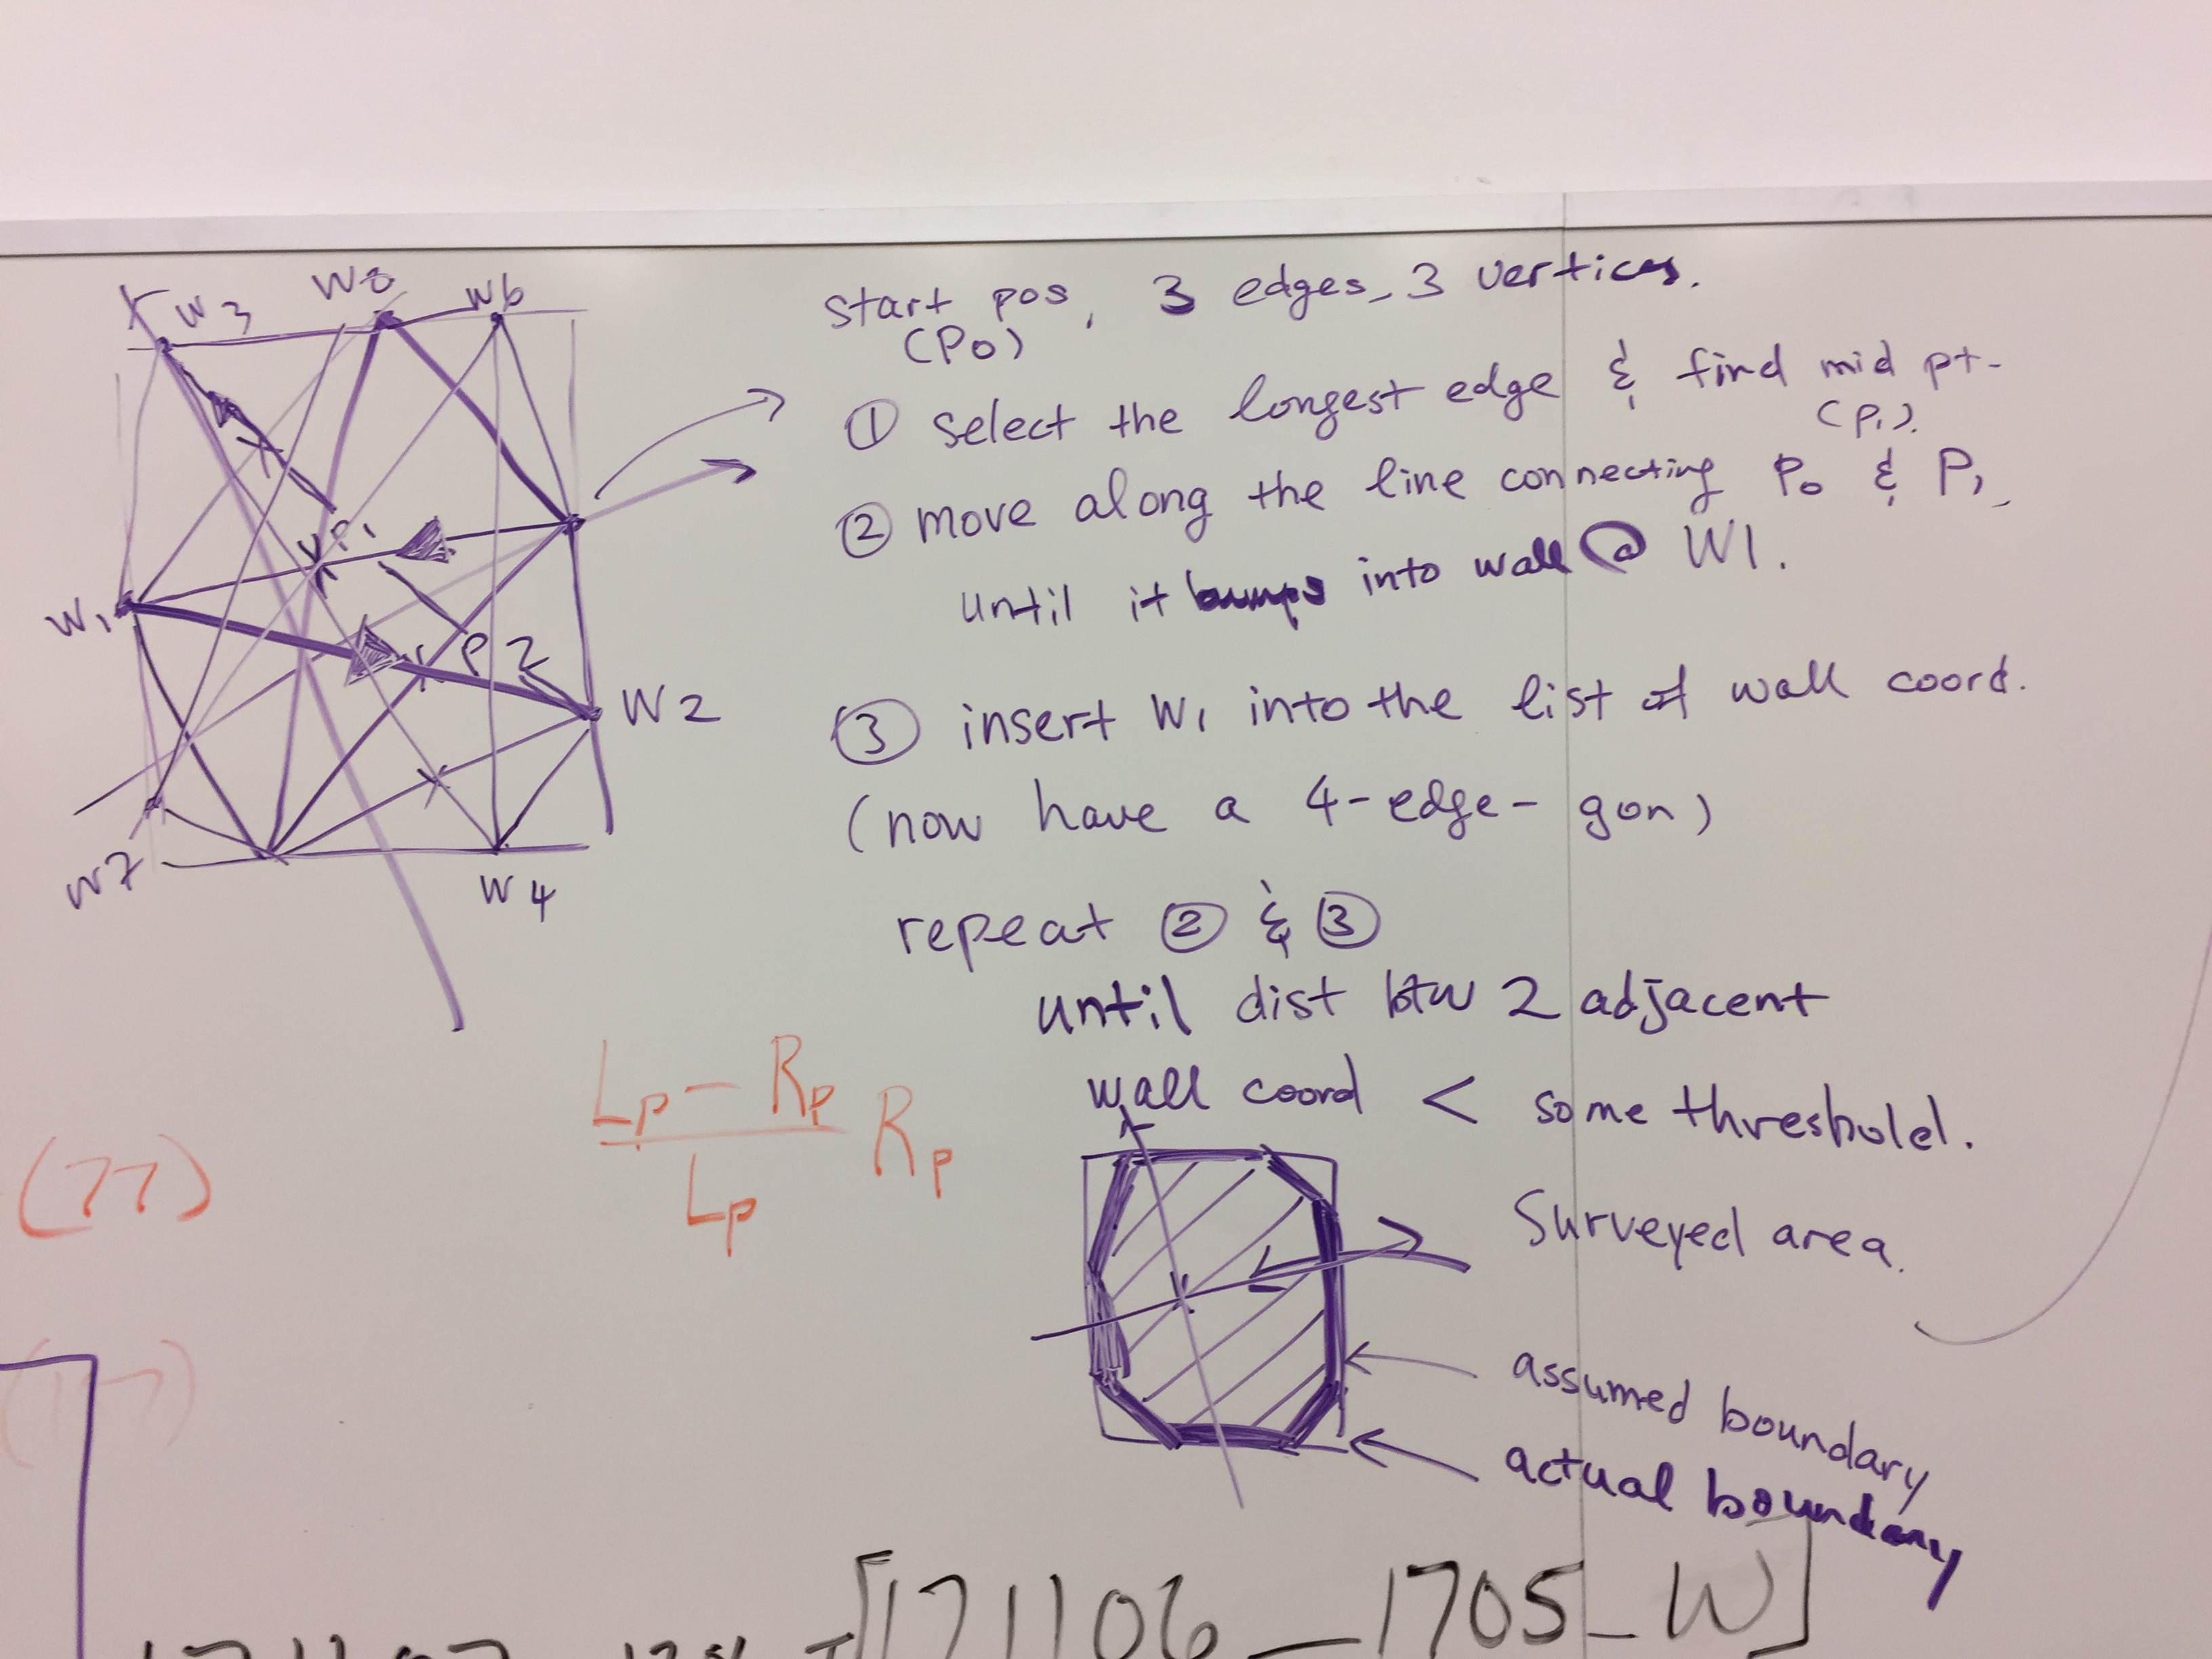 W3
W8
W6
P1
W1
P2
W2
W7
W4
start pos, 3 edges, 3 vertices.
(P0)
① select the longest edge & find mid pt.
(P1).
② move along the line connecting P0 & P1
until it bumps into wall @ W1.
③ insert W1 into the list of wall coord.
(now have a 4-edge-gon)
repeat ② & ③
until dist btw 2 adjacent
wall coord < some threshold.
Lp - Rp
Lp
Rp
(77)
Surveyed area.
assumed boundary
actual boundary
[171106_1705_W]